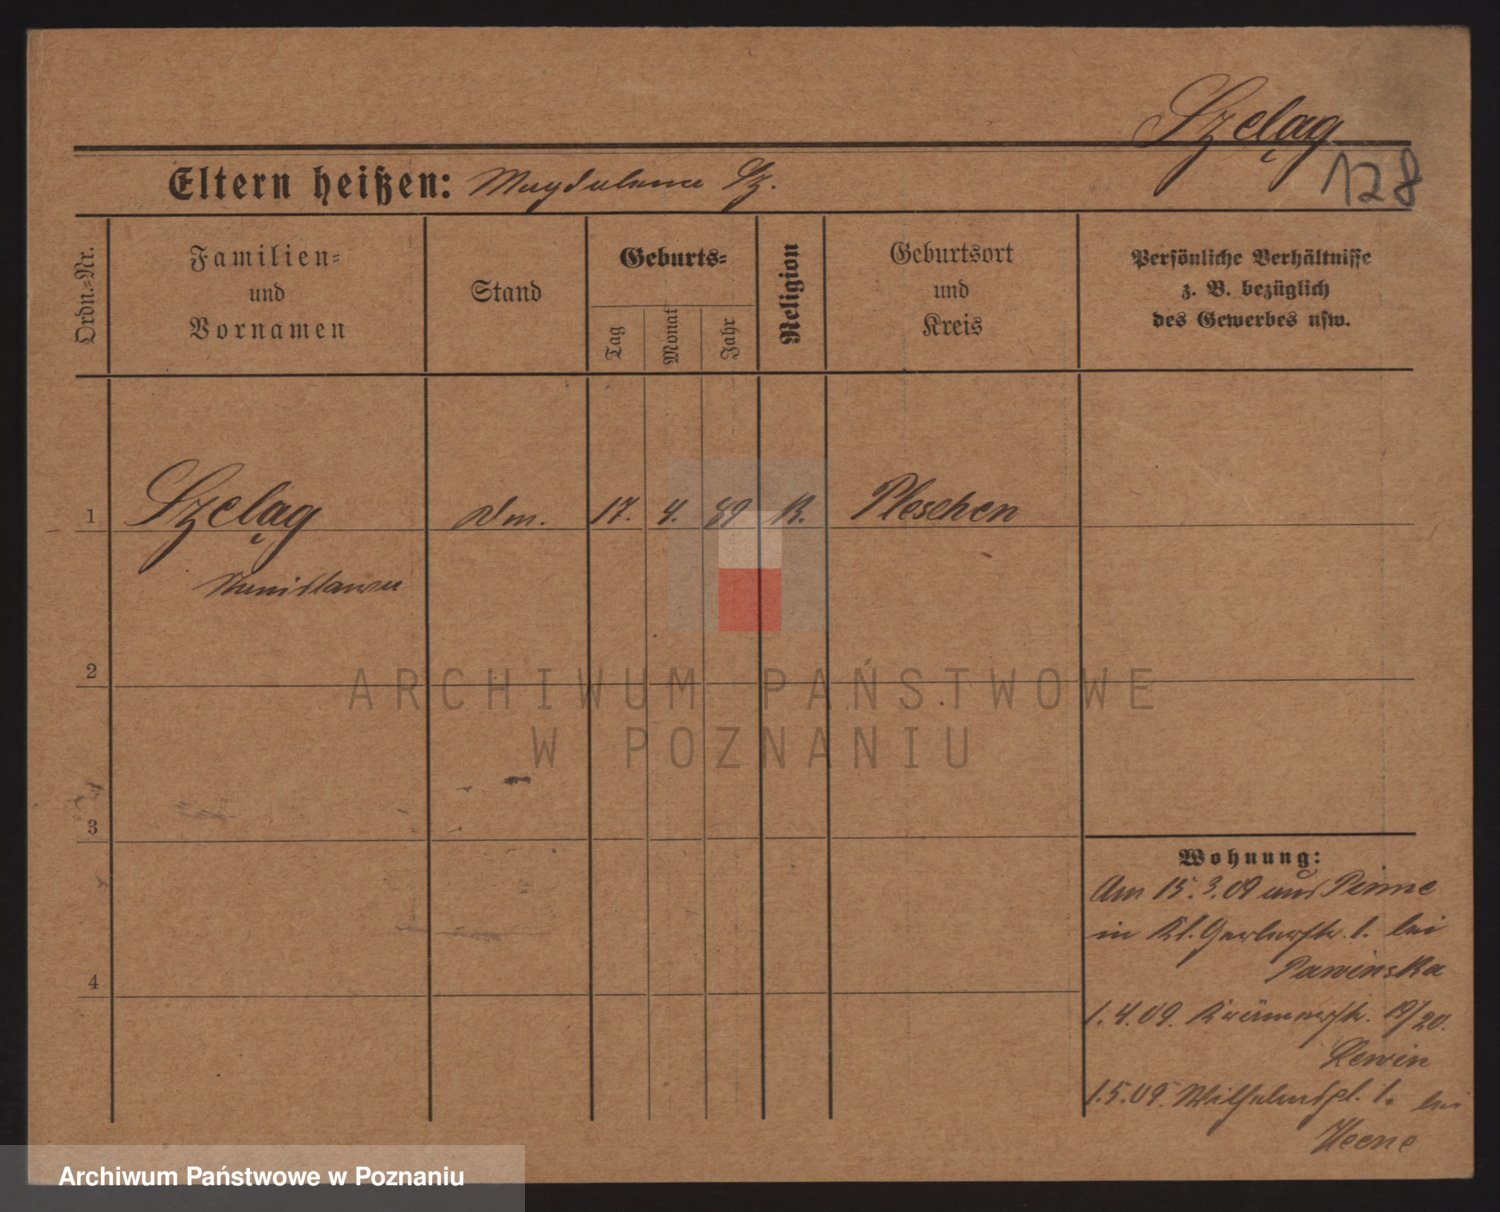 Szeląg
128
Eltern heißen: Magdalena Sz.
Ordn.-Nr.
Familien-
und
Vornamen
Stand
Geburts-
Tag
Monat
Jahr
Religion
Geburtsort
und
Kreis
Persönliche Verhältnisse
z. B. bezüglich
des Gewerbes usw.
1 Szeląg 17. 4. 89 K. Pleschen
Stanislawa
2
3
4
Wohnung:
Am 15.3.09 aus Pinne
in Kl. Gerberstr. 1. bei
Pawinska
1.4.09. Krämerstr. 19/20.
Lewin
1.5.09. Wilhelmspl. 1. bei
Heene
ARCHIWUM PAŃSTWOWE
W POZNANIU
Archiwum Państwowe w Poznaniu